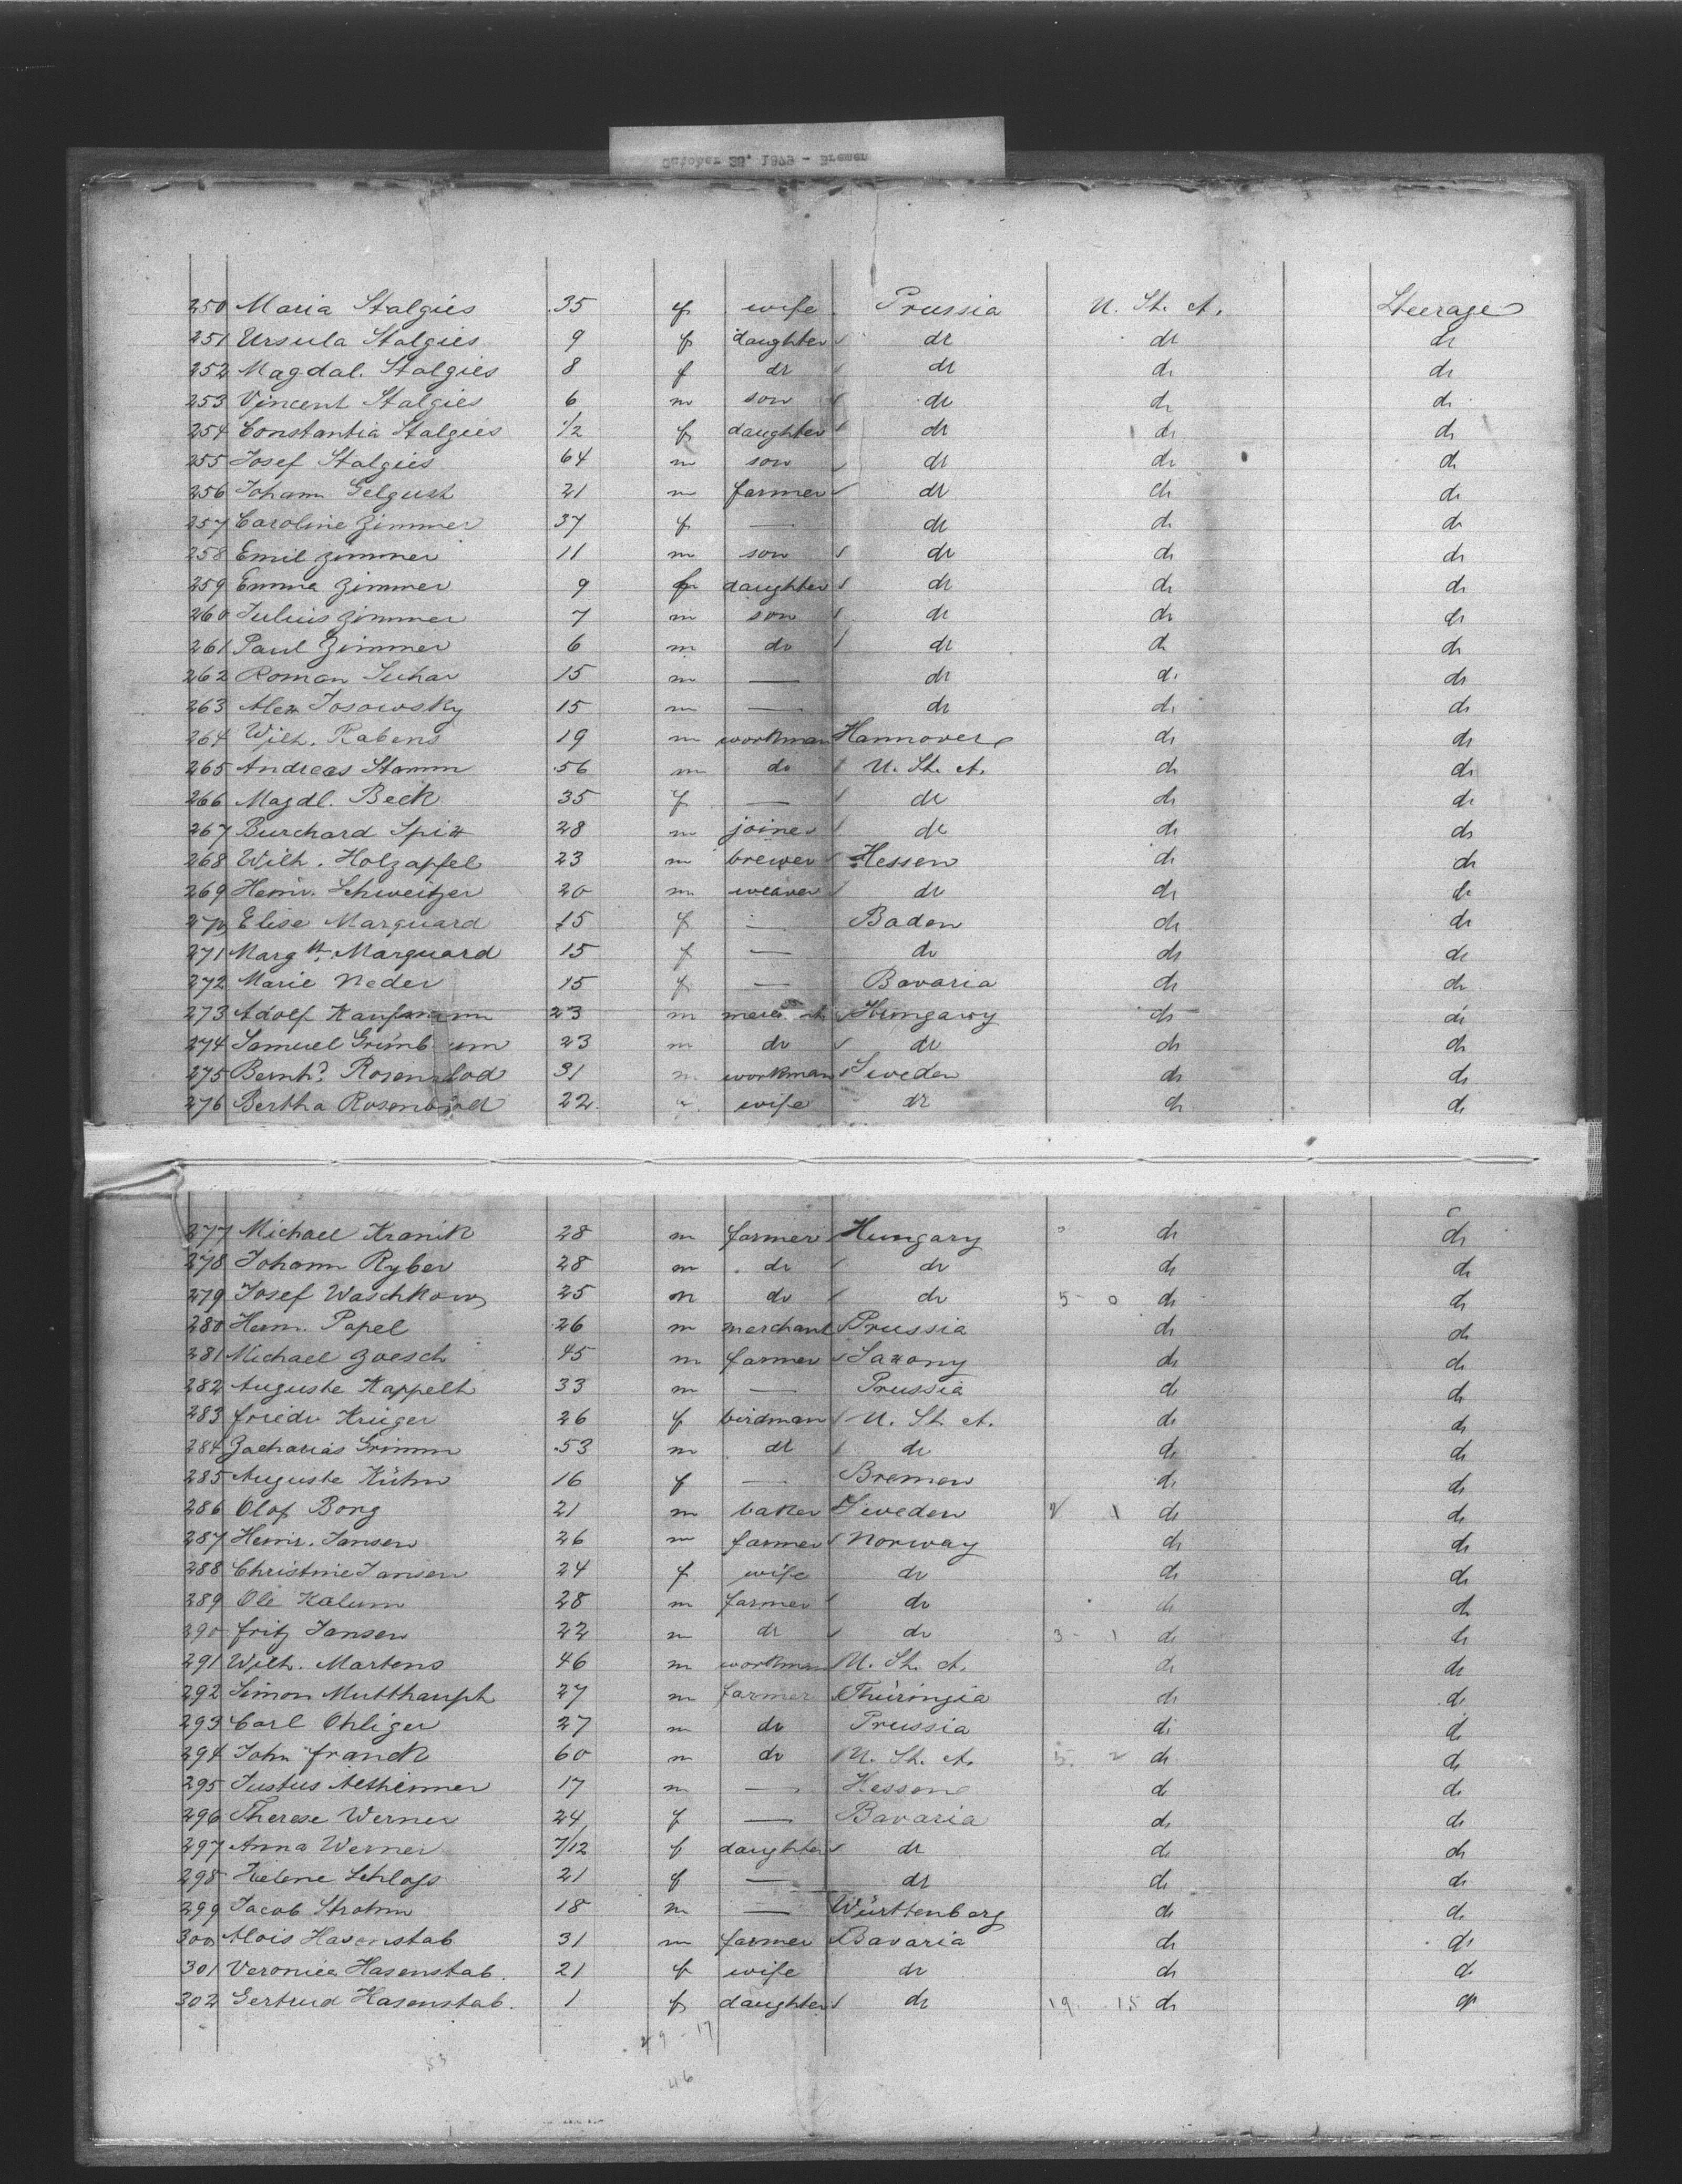 October 30, 1879 - Bremen
250 Maria Stalgies 35 f wife Prussia U. St. A. Steerage
251 Ursula Stalgies 9 f daughter do do do
252 Magdal. Stalgies 8 f do do do do
253 Vincent Stalgies 6 m son do do do
254 Constantia Stalgies 1/2 f daughter do do do
255 Josef Stalgies 64 m son do do do
256 Johann Gelgust 21 m farmer do do do
257 Caroline Zimmer 37 f — do do do
258 Emil Zimmer 11 m son do do do
259 Emma Zimmer 9 f daughter do do do
260 Julius Zimmer 7 m son do do do
261 Paul Zimmer 6 m do do do do
262 Roman Suhar 15 m — do do do
263 Alex Josowsky 15 m — do do do
264 Wilh. Rabens 19 m workman Hannover do do
265 Andreas Stamm 56 m do U. St. A. do do
266 Magdl. Beck 35 f — do do do
267 Burchard Spitz 28 m joiner do do do
268 Wilh. Holzapfel 23 m brewer Hessen do do
269 Heinr. Schweitzer 20 m weaver do do do
270 Elise Marquard 15 f — Baden do do
271 Margt. Marquard 15 f — do do do
272 Marie Neder 15 f — Bavaria do do
273 Adolf Kaufmann 23 m Hungary do do
274 Samuel 23 m do do do do
275 Bernhd. 31 m workman Sweden do do
276 Bertha 22 f wife do do do
277 Michael Kranik 28 m farmer Hungary do do
278 Johann Ryber 28 m do do do do
279 Josef Waschkow 25 m do do 5 - 0 do do
280 Herm. Papel 26 m merchant Prussia do do
281 Michael Zoesch 45 m farmer Saxony do do
282 Auguste Kappelt 33 m — Prussia do do
283 Friedr Krüger 26 f birdman U. St. A. do do
284 Zacharias Grimm 53 m do do do do
285 Auguste Kühn 16 f — Bremen do do
286 Olof Borg 21 m baker Sweden 2 1 do do
287 Heinr. Jansen 26 m farmer Norway do do
288 Christine Jansen 24 f wife do do do
289 Ole Kalum 28 m farmer do do do
290 Fritz Jansen 22 m do do 3 - 1 do do
291 Wilh. Martens 46 m workman U. St. A. do do
292 Simon Mutthaupt 27 m farmer Thüringia do do
293 Carl Ohliger 27 m do Prussia do do
294 John Franck 60 m do U. St. A. 5 2 do do
295 Justus Altheimer 17 m — Hessen do do
296 Therese Werner 24 f — Bavaria do do
297 Anna Werner 7/12 f daughter do do do
298 Helene Schloss 21 f — do do do
299 Jacob Strohm 18 m — Württenberg do do
300 Alois Hasenstab 31 m farmer Bavaria do do
301 Veronica Hasenstab. 21 f wife do do do
302 Gertrud Hasenstab. 1 f daughter do 19. 15 do do
29 - 17
53
46